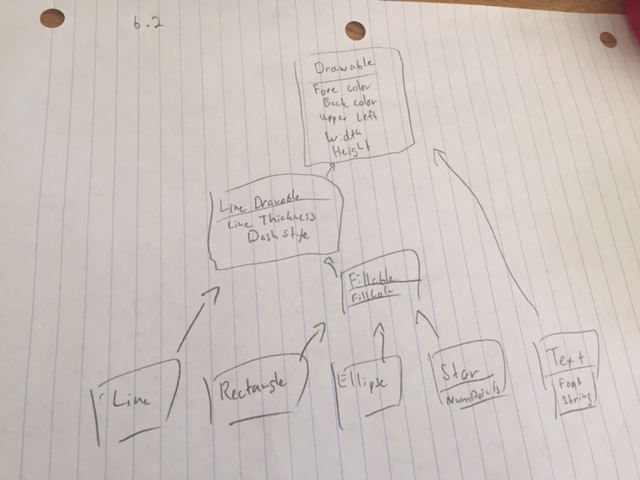 6.2
Drawable
Fore color
Back color
Upper Left
Width
Height
Line Drawable
Line Thickness
Dash style
Fillable
Fill Color
Line
Rectangle
Ellipse
Star
NumPoints
Text
Font
String